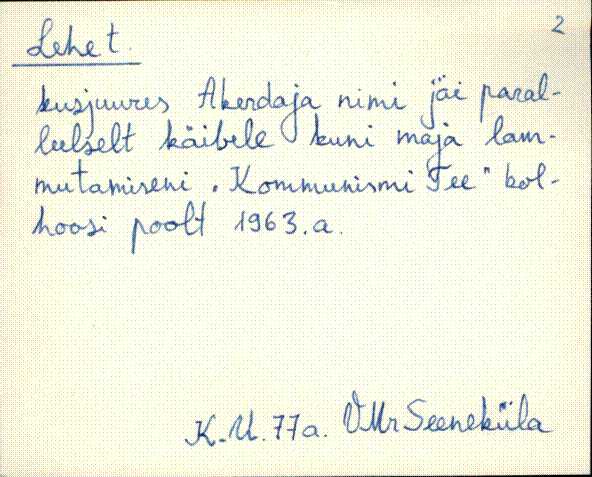 2
Lehet.
kusjuures Akerdaja nimi jäi paral-
leelselt käibele kuni maja lam-
mutamiseni "Kommunismi Tee" kol-
hoosi poolt 1963.a.
K.U. 77a. VMr Seeneküla